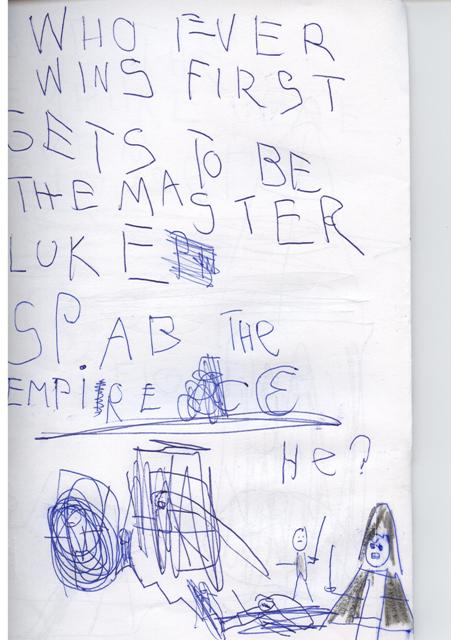 WHO EVER
WINS FIRST
GETS TO BE
THE MASTER
LUKE
SPAB THE
EMPIRE
HE?